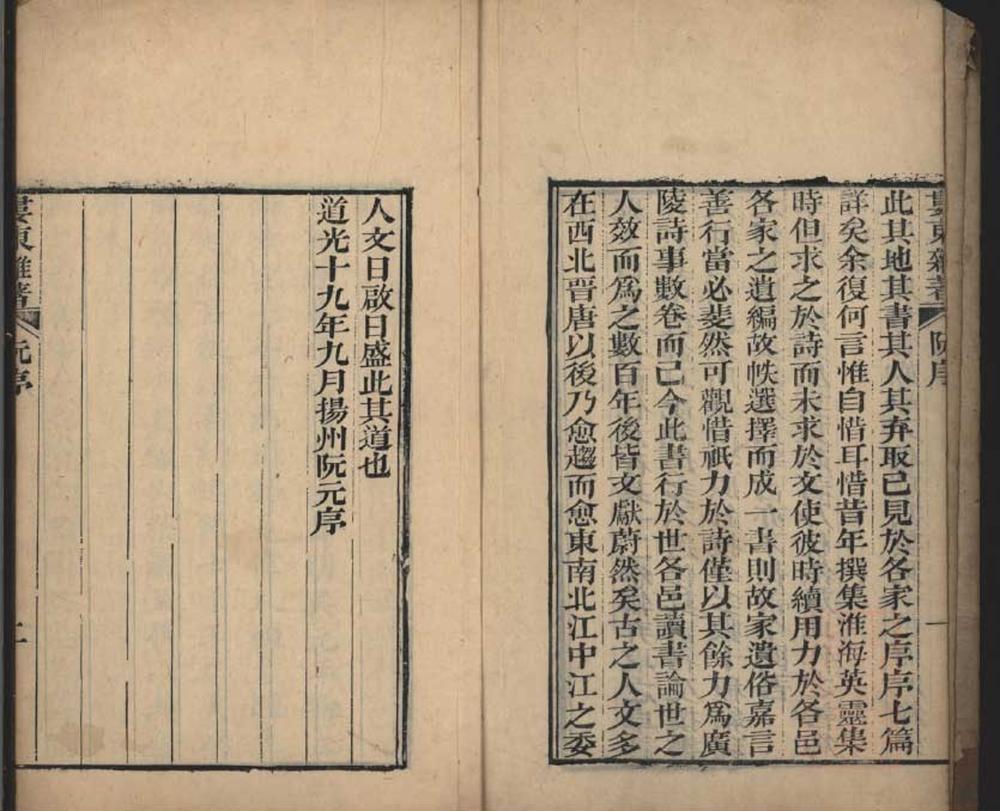 婁東雜著
阮序
一
此其地其書其人其弃取已見於各家之序序七篇
詳矣余復何言惟自惜耳惜昔年撰集淮海英靈集
時但求之於詩而未求於文使彼時續用力於各邑
各家之遺編故帙選擇而成一書則故家遺俗嘉言
善行當必斐然可觀惜祇力於詩僅以其餘力爲廣
陵詩事數卷而已今此書行於世各邑讀書論世之
人效而爲之數百年後皆文獻蔚然矣古之人文多
在西北晉唐以後乃愈趨而愈東南北江中江之委
人文日啟日盛此其道也
道光十九年九月揚州阮元序
婁東雜著
阮序
二